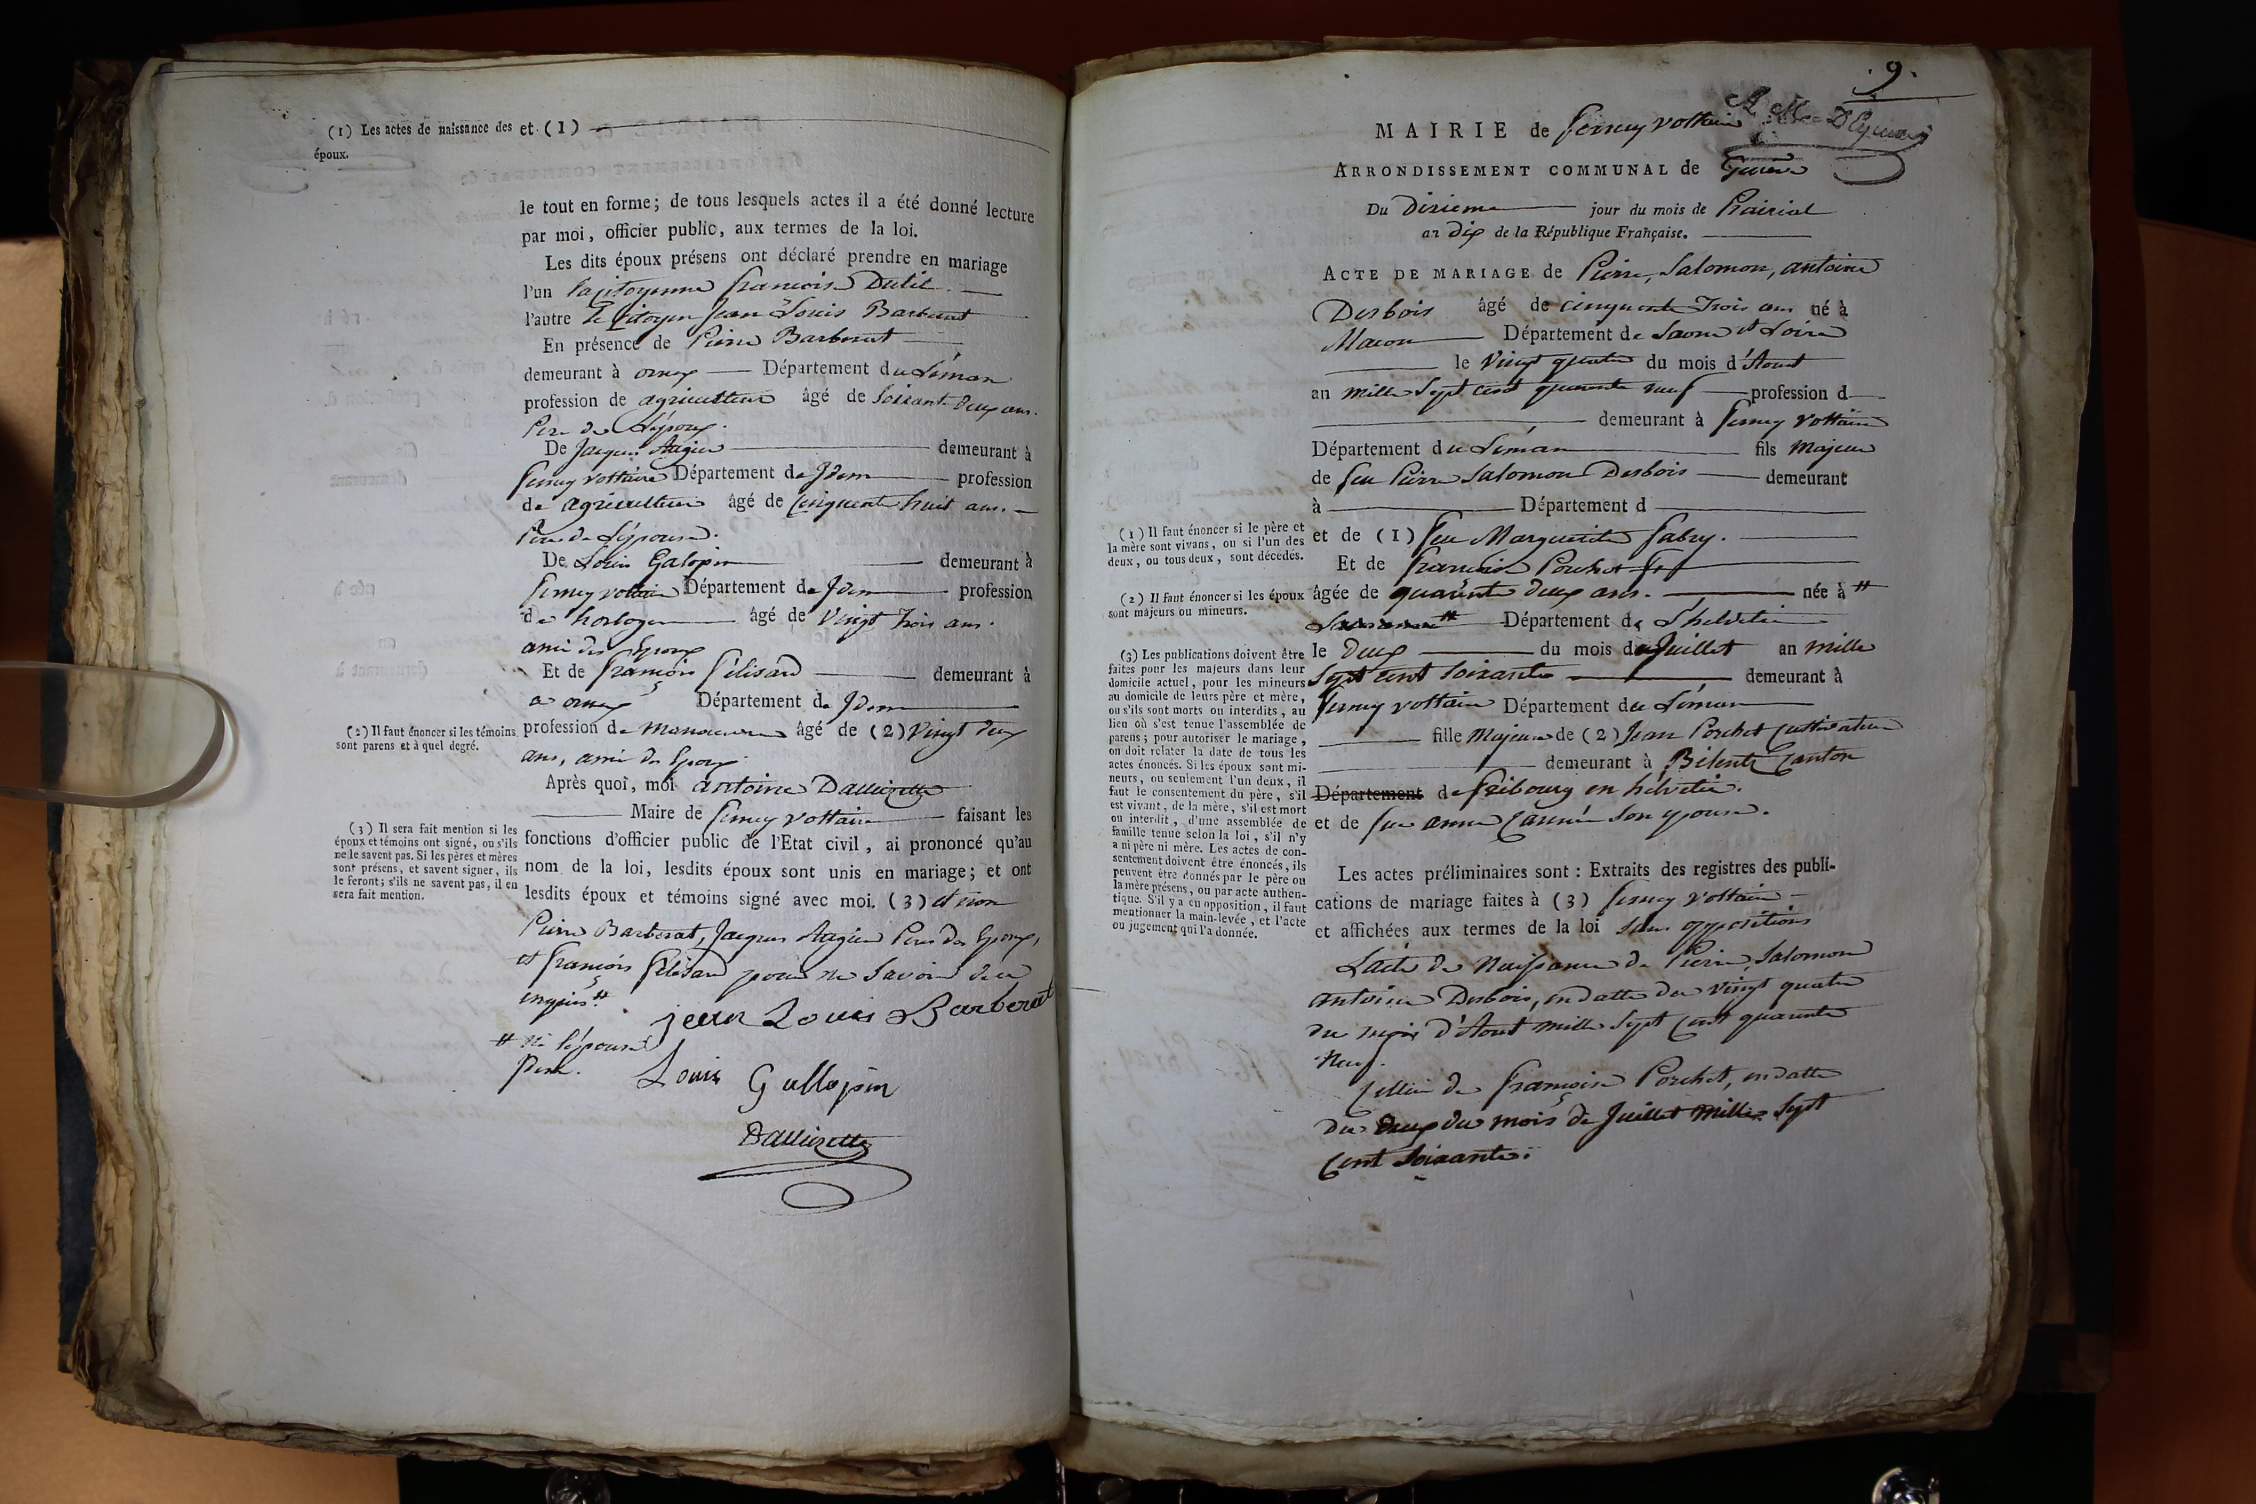 (1) Les actes de naissance des
époux.
et (1)
le tout en forme; de tous lesquels actes il a été donné lecture
par moi, officier public, aux termes de la loi.
Les dits époux présens ont déclaré prendre en mariage
l'un la citoyenne francoise
l'autre le Citoyen Jean Louis Barberat
En présence de Pierre Barberat
demeurant à ornex Département du Léman
profession de agriculteur âgé de Soixante deux ans.
Pere de L'époux.
De Jacques demeurant à
ferney voltaire Département de Idem profession
de agriculteur âgé de Cinquante huit ans.
Pere de L'épouse.
De Louis Galopin demeurant à
ferney voltaire Département de Idem profession
de horloger âgé de Vingt trois ans.
ami des Epoux
Et de françois félisard demeurant à
a ornex Département de Idem
(2) Il faut énoncer si les témoins
sont parens et à quel degré.
profession de manoeuvre âgé de (2) Vingt deux
ans, ami des Epoux.
Après quoi, moi antoine Dallizette
Maire de ferney voltaire faisant les
(3) Il sera fait mention si les
époux et témoins ont signé, ou s'ils
ne le savent pas. Si les pères et mères
sont présens, et savent signer, ils
le feront; s'ils ne savent pas, il en
sera fait mention.
fonctions d'officier public de l'Etat civil, ai prononcé qu'au
nom de la loi, lesdits époux sont unis en mariage; et ont
lesdits époux et témoins signé avec moi. (3) et non
Pierre Barberat, Jacques Peres des Epoux,
et françois félisard pour ne Savoir de ce
enquis #
# ni l'épouse
jean Louis Barberat
Louis Gallopin
Dallizette
9.
MAIRIE de ferney voltaire
ARRONDISSEMENT COMMUNAL de Genève
Du Dixieme jour du mois de Prairial
an dix de la République Française.
ACTE DE MARIAGE de Pierre, Salomon, antoine
Desbois âgé de cinquante trois ans né à
Macon Département de Saone et Loire
le Vingt quatre du mois d'Aout
an mille Sept cent quarante neuf profession d
demeurant à ferney voltaire
Département du Léman fils majeur
de feu Pierre Salomon Desbois demeurant
à Département d
(1) Il faut énoncer si le père et
la mère sont vivans, ou si l'un des
deux, ou tous deux, sont décédés.
et de (1) feu Marguerite fabry.
Et de francoise Porchet
(2) Il faut énoncer si les époux
sont majeurs ou mineurs.
âgée de quarante deux ans. née à #
# Département de L'helvetie
(3) Les publications doivent être
faites pour les majeurs dans leur
domicile actuel, pour les mineurs
au domicile de leurs père et mère,
ou s'ils sont morts ou interdits, au
lieu où s'est tenue l'assemblée de
parens; pour autoriser le mariage,
on doit relater la date de tous les
actes énoncés. Si les époux sont mi-
neurs, ou seulement l'un deux, il
faut le consentement du père, s'il
est vivant, de la mère, s'il est mort
ou interdit, d'une assemblée de
famille tenue selon la loi, s'il n'y
a ni père ni mère. Les actes de con-
sentement doivent être énoncés, ils
peuvent être donnés par le père ou
la mère présens, ou par acte authen-
tique. S'il y a eu opposition, il faut
mentionner la main-levée, et l'acte
ou jugement qui l'a donnée.
le deux du mois de Juillet an mille
Sept cent soixante demeurant à
ferney voltaire Département du Léman
fille Majeure de (2) Jean Porchet Cultivateur
demeurant à Canton
Département de fribourg en helvetie.
et de feu anne son epouse.
Les actes préliminaires sont : Extraits des registres des publi-
cations de mariage faites à (3) ferney voltaire
et affichées aux termes de la loi sans oppositions
L'acte de Naissance de Pierre, Salomon
antoine Desbois, en datte du vingt quatre
du mois d'Aout mille Sept Cent quarante
Neuf.
Celui de françoise Porchet, en datte
du deux du mois de Juillet mille Sept
Cent Soixante.